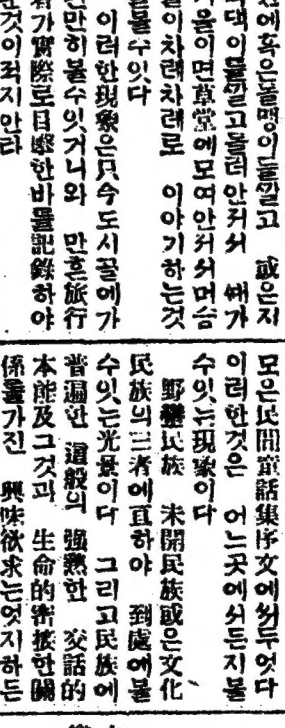 에혹은돌맹이를깔고 或은지
댁이를깔고둘러안저서 때가
겨을이면草堂에모여안저서머슴
들이차레차레로 이야기하는것
을볼수잇다
이러한現象은只今도시골에가
면만히볼수잇거니와 만흔旅行
者가實際로目擊한바를記錄하야
논것이적지안타
모은民間童話集序文에써두엇다
이러한것은 어느곳에서든지볼
수잇는現象이다
野蠻民族 未開民族或은文化
民族의三者에亘하야 到處에볼
수잇는光景이다 그리고民族에
普遍한 這般의 強熱한 交話的
本能及그것과 生命的密接한關
係를가진 興味欲求는엇지하든